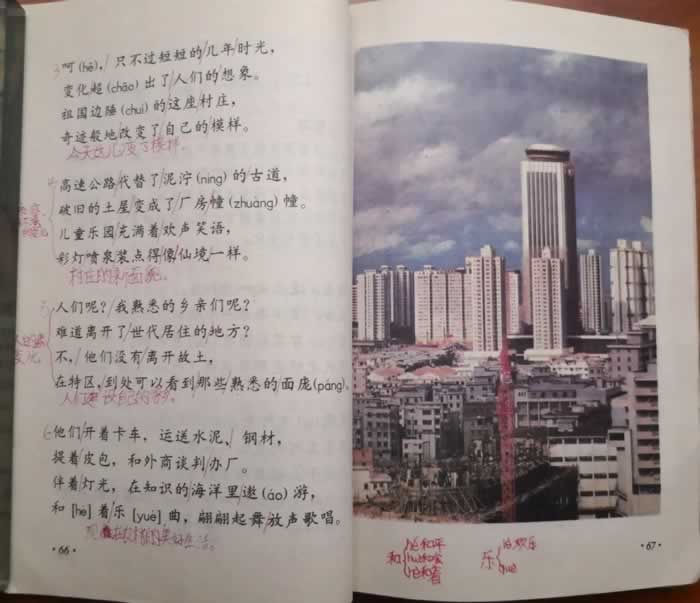 3呵(hē)，只不过短短的几年时光，
变化超(chāo)出了人们的想象。
祖国边陲(chuí)的这座村庄，
奇迹般地改变了自己的模样。
今天这儿变了模样。
高速公路代替了泥泞(nìng)的古道，
破旧的土屋变成了厂房幢(zhuàng)幢。
儿童乐园充满着欢声笑语，
彩灯喷泉装点得像仙境一样。
村庄的新面貌。
人们呢？我熟悉的乡亲们呢？
难道离开了世代居住的地方？
不，他们没有离开故土，
在特区，到处可以看到那些熟悉的面庞(páng)。
人们建设自己的家乡。
6他们开着卡车，运送水泥、钢材，
提着皮包，和外商谈判办厂。
伴着灯光，在知识的海洋里遨(áo)游，
和[hè]着乐[yuè]曲，翩翩起舞放声歌唱。
·66·
·67·
和
乐